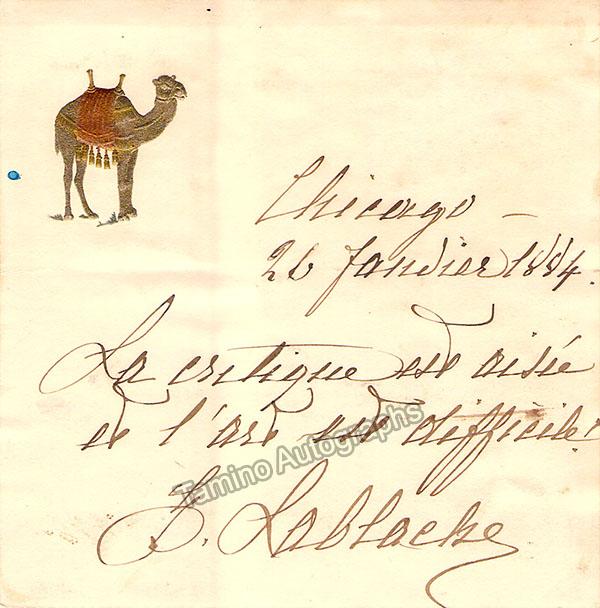 Chicago –
26 Janvier 1884.
La critique est aisée
et l'art est difficile!
Tamino Autographs
E. Lablache